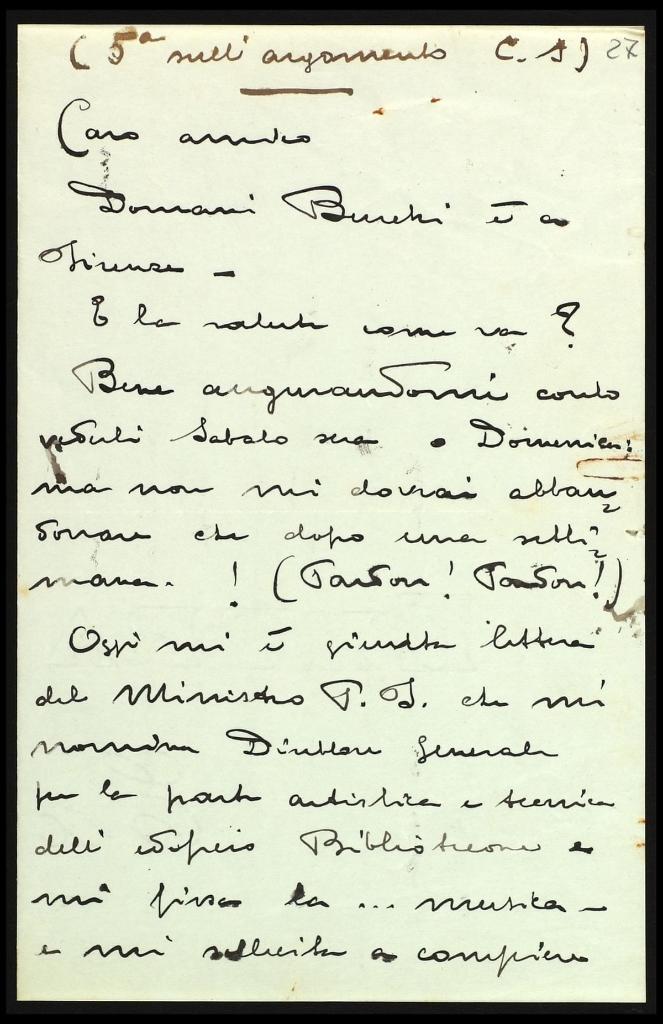 (5ª sull'argomento C. S) 27
Caro amico
Domani Bureki è a
Firenze —
E la salute come va?
Bene augurandomi conto
vederti Sabato sera o Domenica:
ma non mi dovrai abban=
donare che dopo una setti=
mana. ! (Pardon! Pardon!)
Oggi mi è giunta lettera
del Ministro P. I. che mi
nomina Direttore Generale
per la parte artistica e tecnica
dell'edificio Biblioteca e
mi fissa la ... musica —
e mi sollecita a compiere